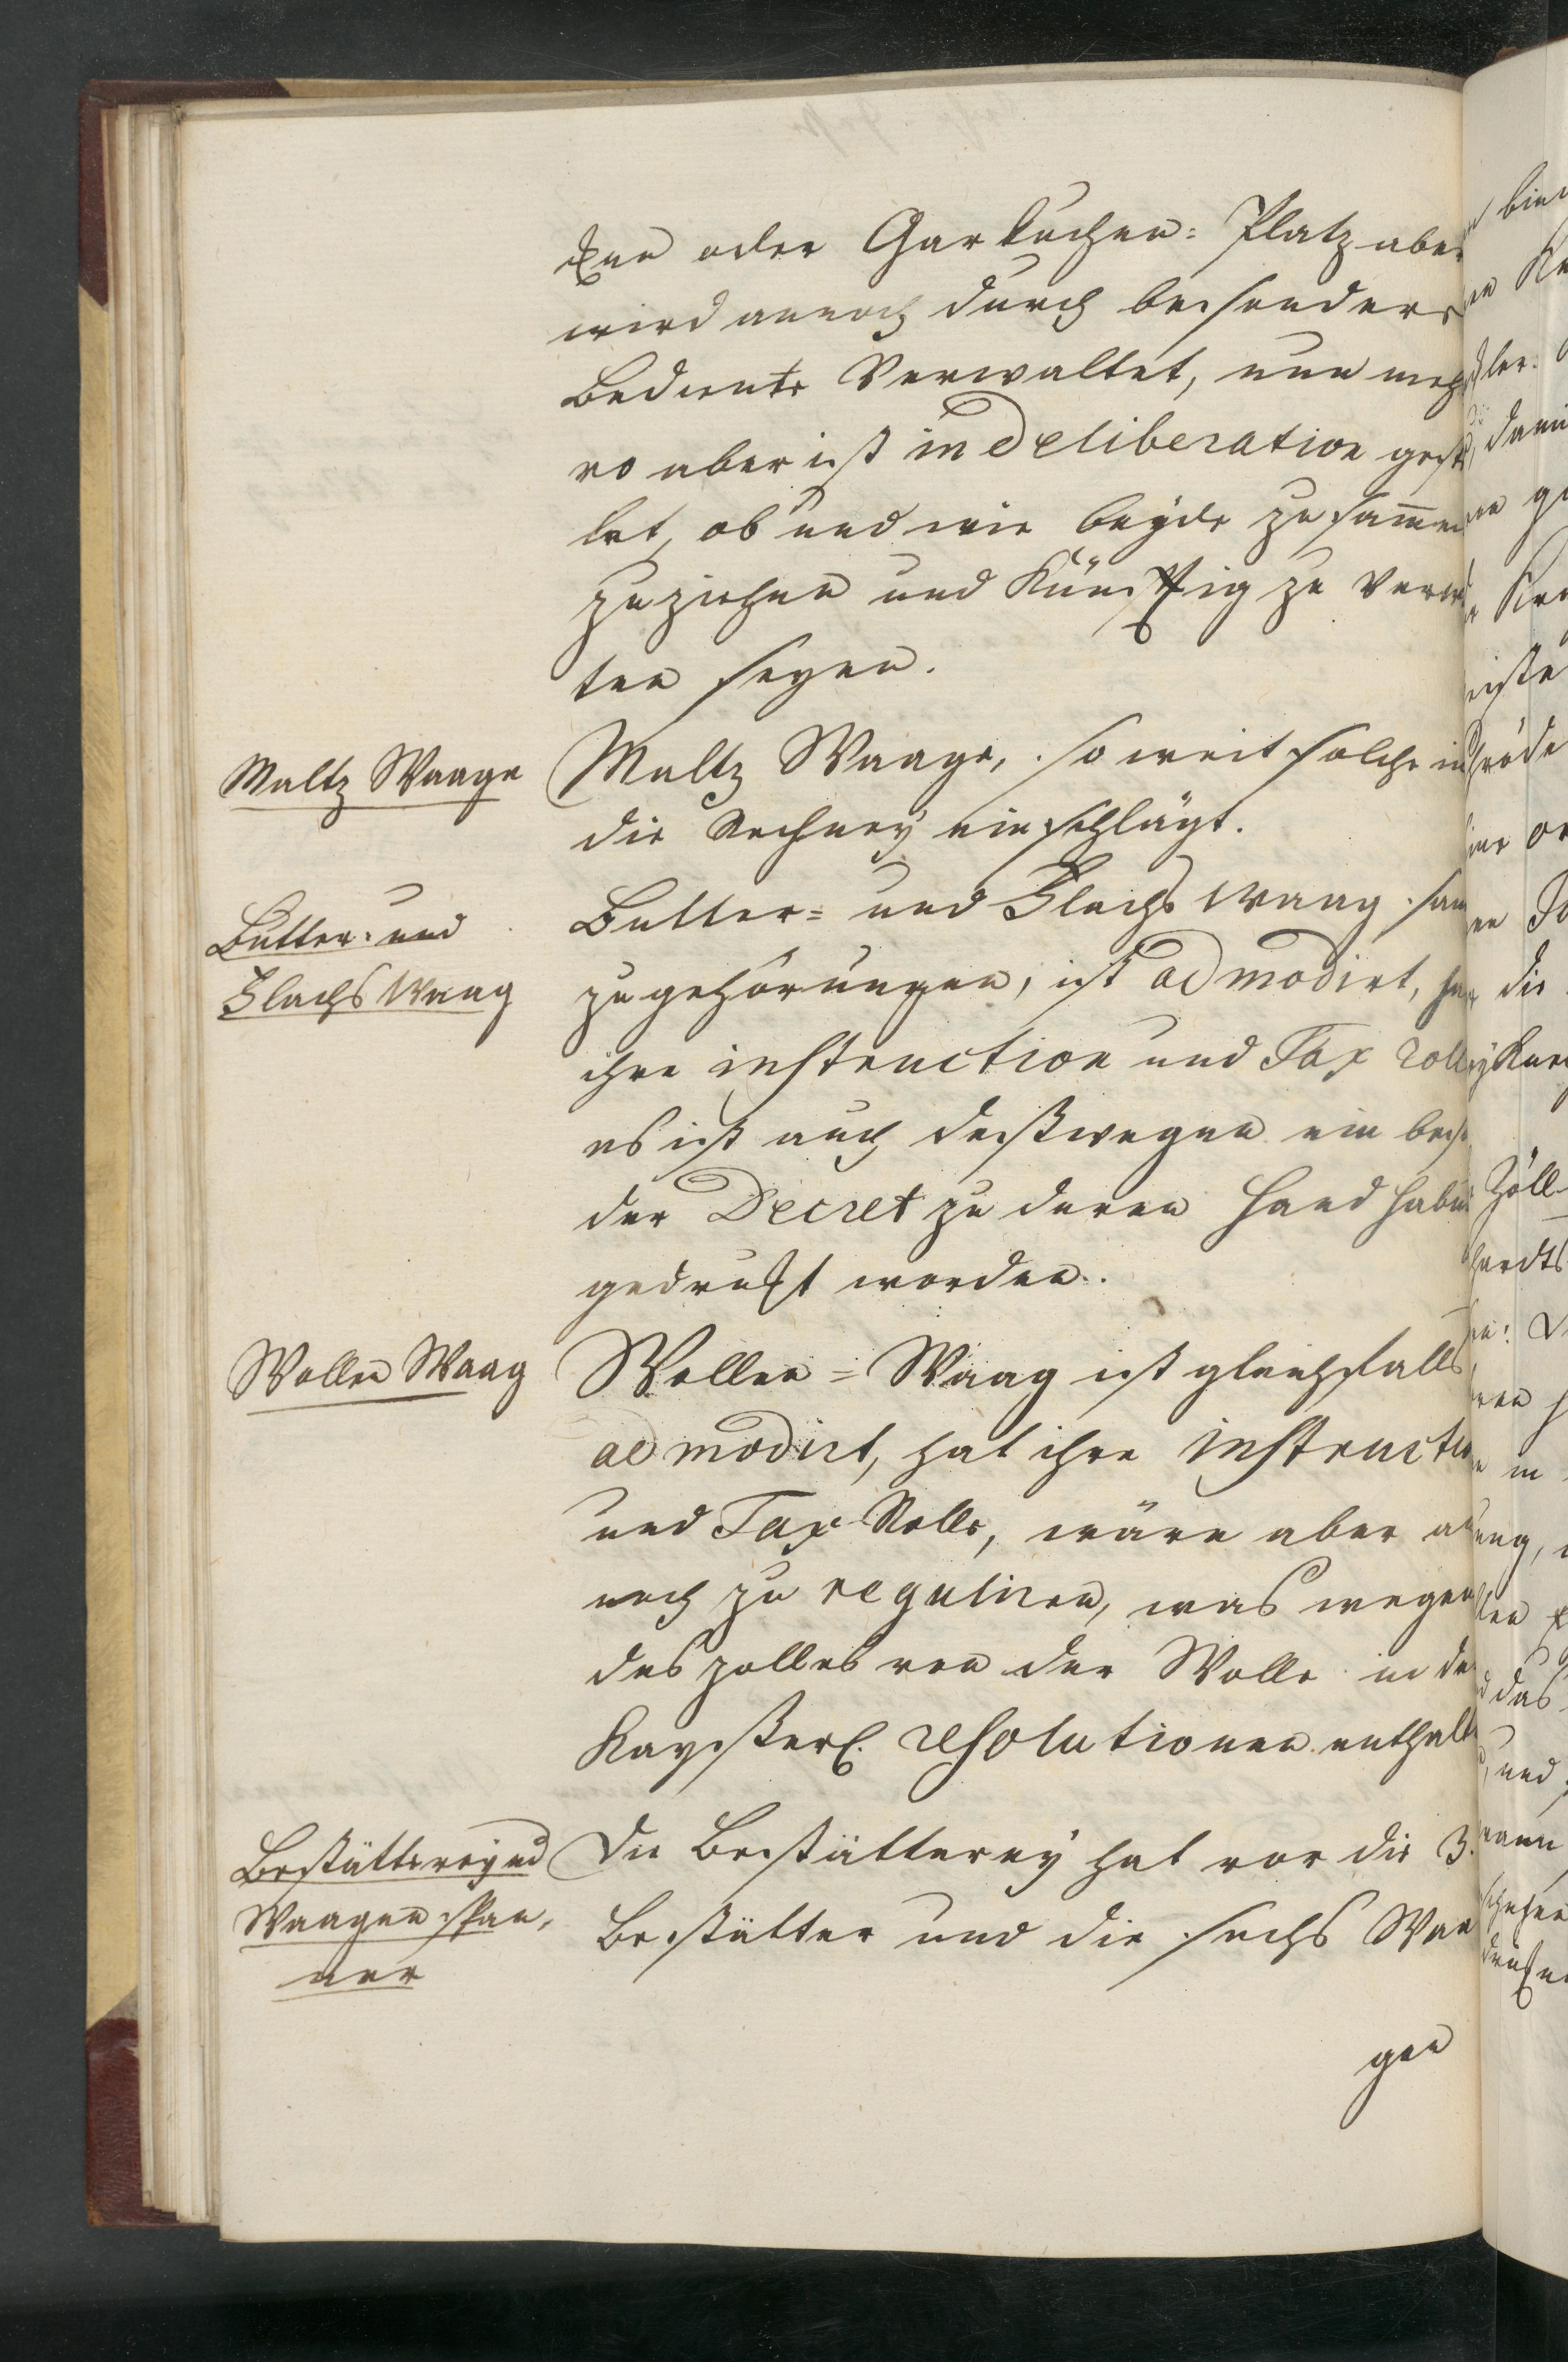 cken oder Garküchen: Platz aber
wird annoch durch besondere
Bediente Verwaltet, nun meh
ro aber ist in Deliberation gest
let, ob und wie beyde zusam̄en
zuziehen und Künfftig zu Verw
ten seyen.
Maltz Waage
Maltz Waage, so weit solche in
die Rechney einschlägt.
Butter- und
Flachs Waag
Butter- und Flachs Waag sam
zugehörungen, ist admodirt, ha
ihre instruction und Tax Roll
es ist auch desswegen ein beso
der Decret zu deren Handhabu
gedruckt worden.
Wollen Waag
Wollen- Waag ist gleichfalls
admodirt, hat ihre instructio
und Tax Rolle, wäre aber an
noch zu reguliren, was wegen
des zolles von der Wolle in de
Kaysserl. resolutionen enthalt
Bestätterey und
Waagenspan,
ner
Die Bestätterey hat vor die 3.
Bestätter und die sechs Waa
gen